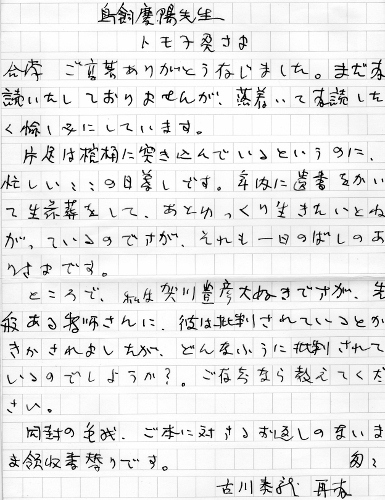 鳥飼慶陽先生
トモ子奥さま
合掌 ご高著ありがとう存じました。まだ拝
読いたしておりませんが、落着いて拝読した
く愉しみにしています。
片足は棺桶に突き込んでいるというのに、
忙しいここの日暮しです。年内に遺書をかい
て生前葬をして、あとゆっくり生きたいとね
がっているのですが、それも一日のばしのあ
りさまです。
ところで、私は賀川豊彦大好きですが、先
般ある牧師さんに、彼は批判されているとか
きかされましたが、どんなふうに批判されて
いるのでしょうか?。ご存知なら教えてくだ
さい。
同封の 、ご本に対するお返しのないま
ま領収書替りです。
古川泰龍 再拝